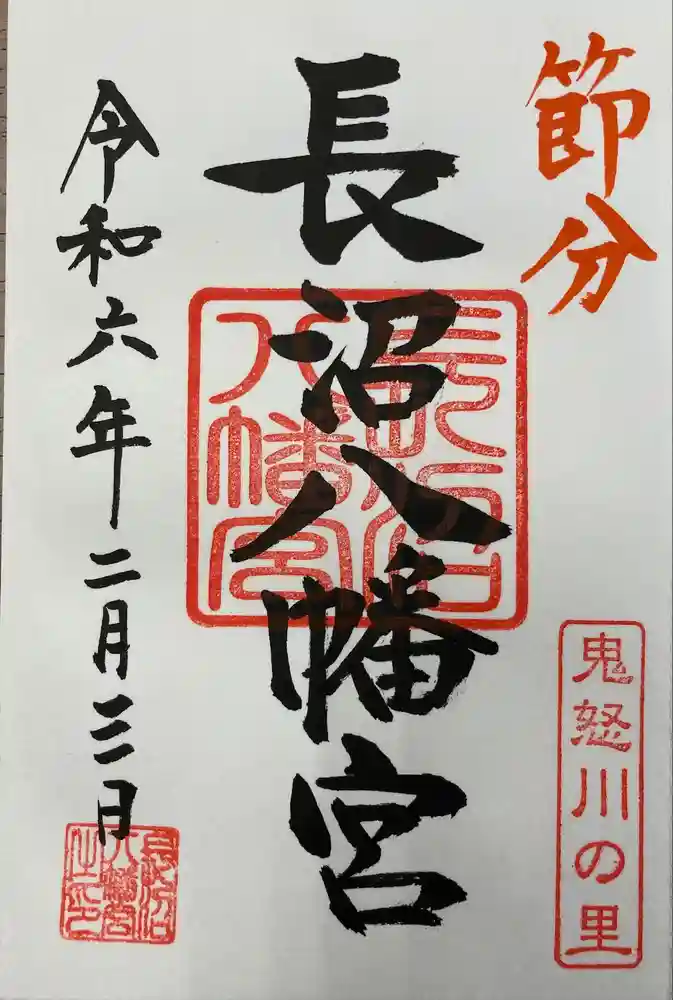 節分
鬼怒川の里
長沼八幡宮
長沼八幡宮
令和六年二月三日
長沼八幡宮社印